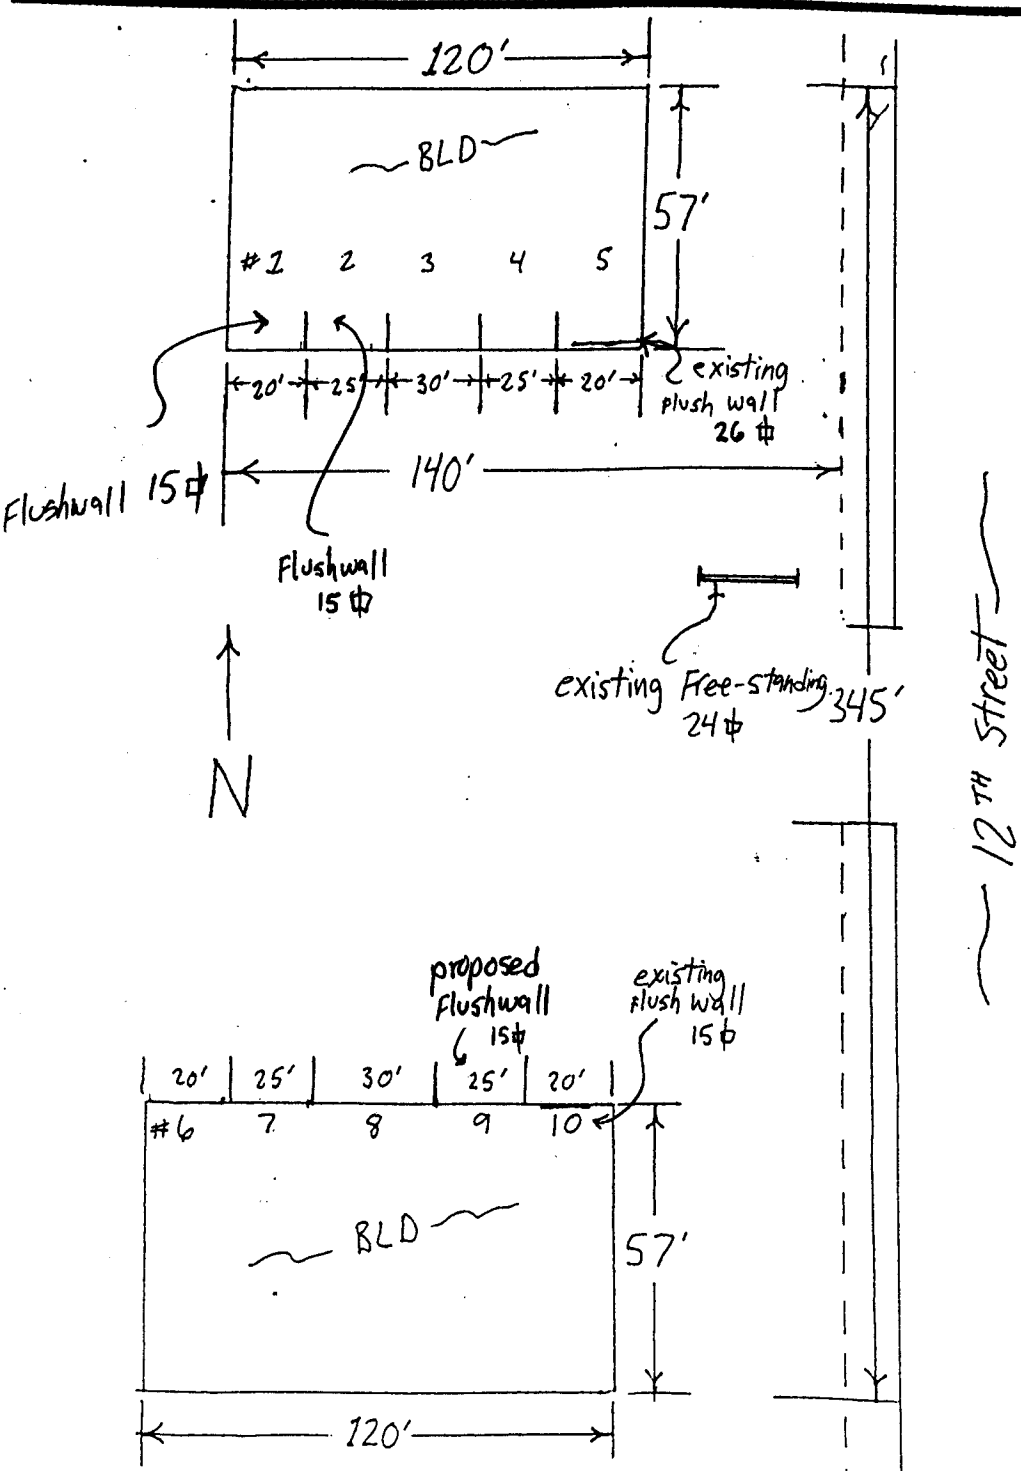 120'
BLD
57'
#1 2 3 4 5
20' 25' 30' 25' 20'
existing
flush wall
26 ⌑
140'
Flushwall 15 ⌑
Flushwall
15 ⌑
existing Free-standing
24 ⌑
345'
N
12TH Street
proposed
Flushwall
15 ⌑
existing
flush wall
15 ⌑
20' 25' 30' 25' 20'
#6 7 8 9 10
BLD
57'
120'